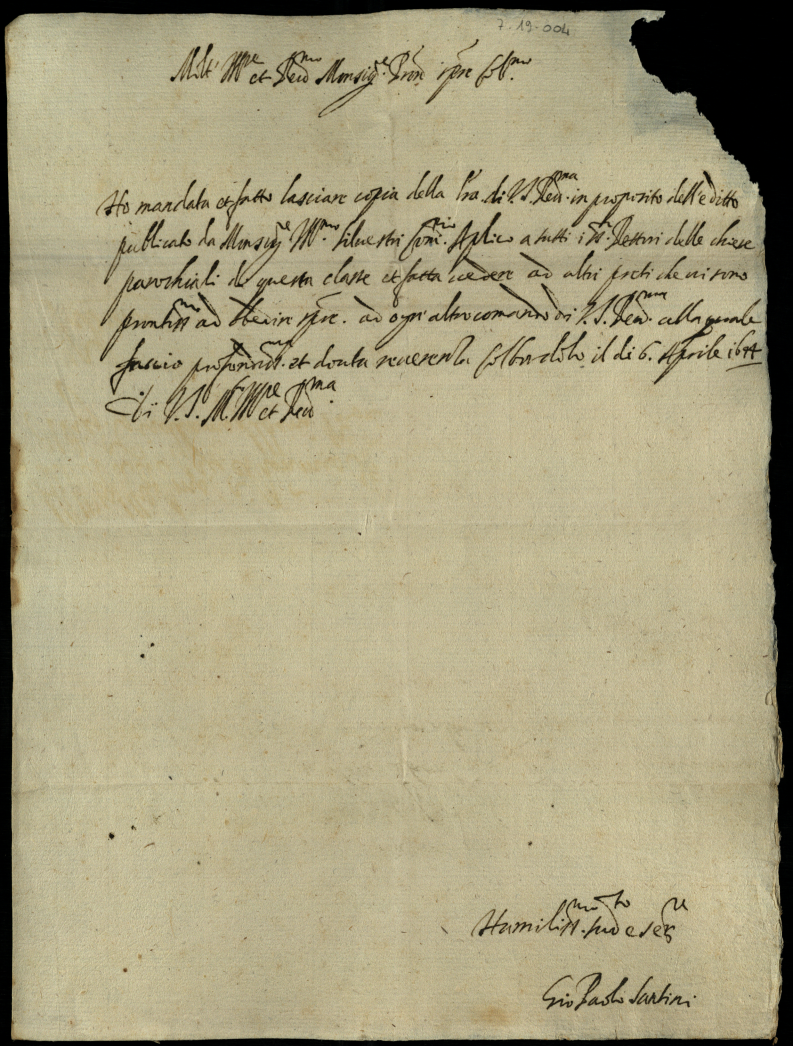 7.19.004
Molt' Ill.re et Rev.mo Monsig.re Pron' spre Col.mo
Ho mandata et fatto lasciare copia della l'ra di V.S. Rev.ma in proposito dell'editto
publicato da Monsig.re Ill.mo Silvestri Com.rio Aplico a tutti i SS.ri Rettori delle chiese
parochiali di questa classe et fatta vedere ad altri preti che vi sono
prontiss.mo ad obedire spre. ad ogn' altro comando di V.S. Rev.ma alla quale
faccio profondiss.ma et douta reverenza Colbordolo il di 6. Aprile
Di V.S. M. Ill.re et Rev.ma
Humiliss.mo sud.to e ser.re
Gio Paolo Santini